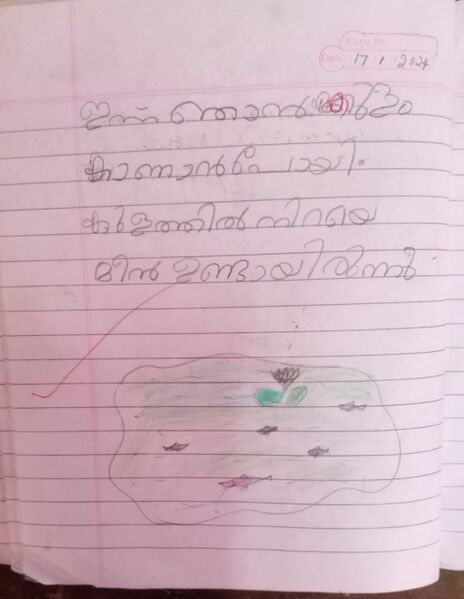 Page No.
Date 17 / 1 / 2024
ഇന്ന് ഞാൻ കുളം
കാണാൻ പോയി.
കുളത്തിൽ നിറയെ
മീൻ ഉണ്ടായിരുന്നു